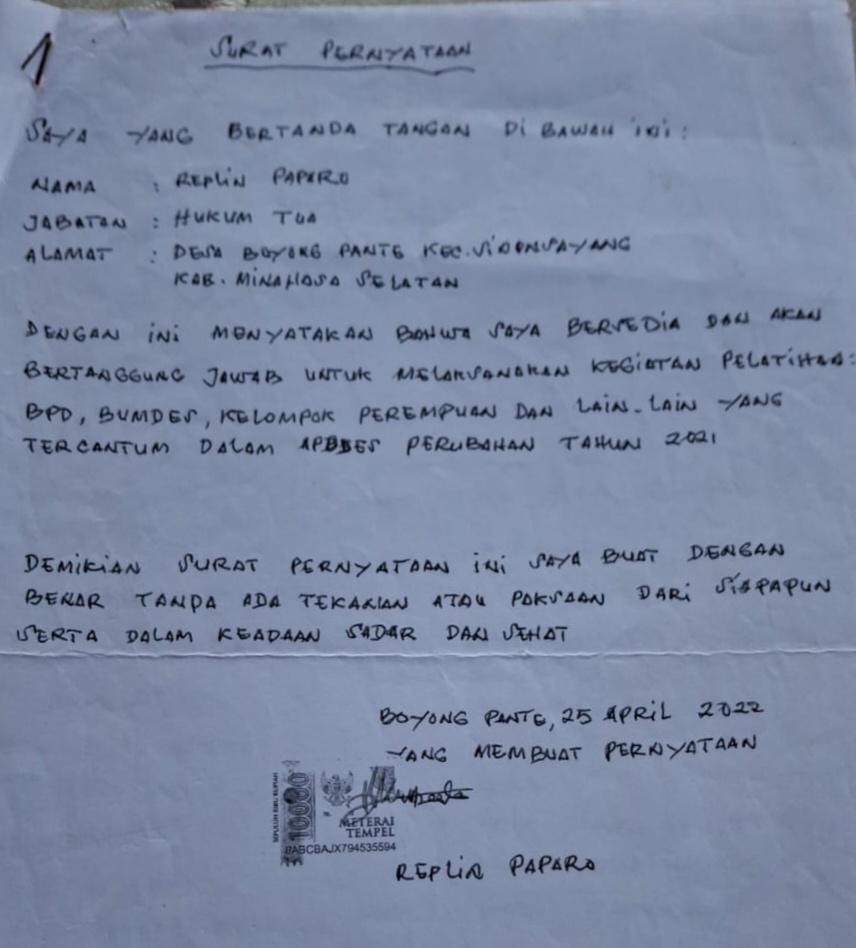 1
SURAT PERNYATAAN
SAYA YANG BERTANDA TANGAN DI BAWAH INI:
NAMA : REPLIN PAPARO
JABATAN : HUKUM TUA
ALAMAT : DESA BOYONG PANTE KEC. SINONSAYANG
KAB. MINAHASA SELATAN
DENGAN INI MENYATAKAN BAHWA SAYA BERSEDIA DAN AKAN
BERTANGGUNG JAWAB UNTUK MELAKSANAKAN KEGIATAN PELATIHAN:
BPD, BUMDES, KELOMPOK PEREMPUAN DAN LAIN-LAIN YANG
TERCANTUM DALAM APBDES PERUBAHAN TAHUN 2021
DEMIKIAN SURAT PERNYATAAN INI SAYA BUAT DENGAN
BENAR TANPA ADA TEKANAN ATAU PAKSAAN DARI SIAPAPUN
SERTA DALAM KEADAAN SADAR DAN SEHAT
BOYONG PANTE, 25 APRIL 2022
YANG MEMBUAT PERNYATAAN
SEPULUH RIBU RUPIAH
10000
METERAI
TEMPEL
ABCBAJX794535594
REPLIN PAPARO